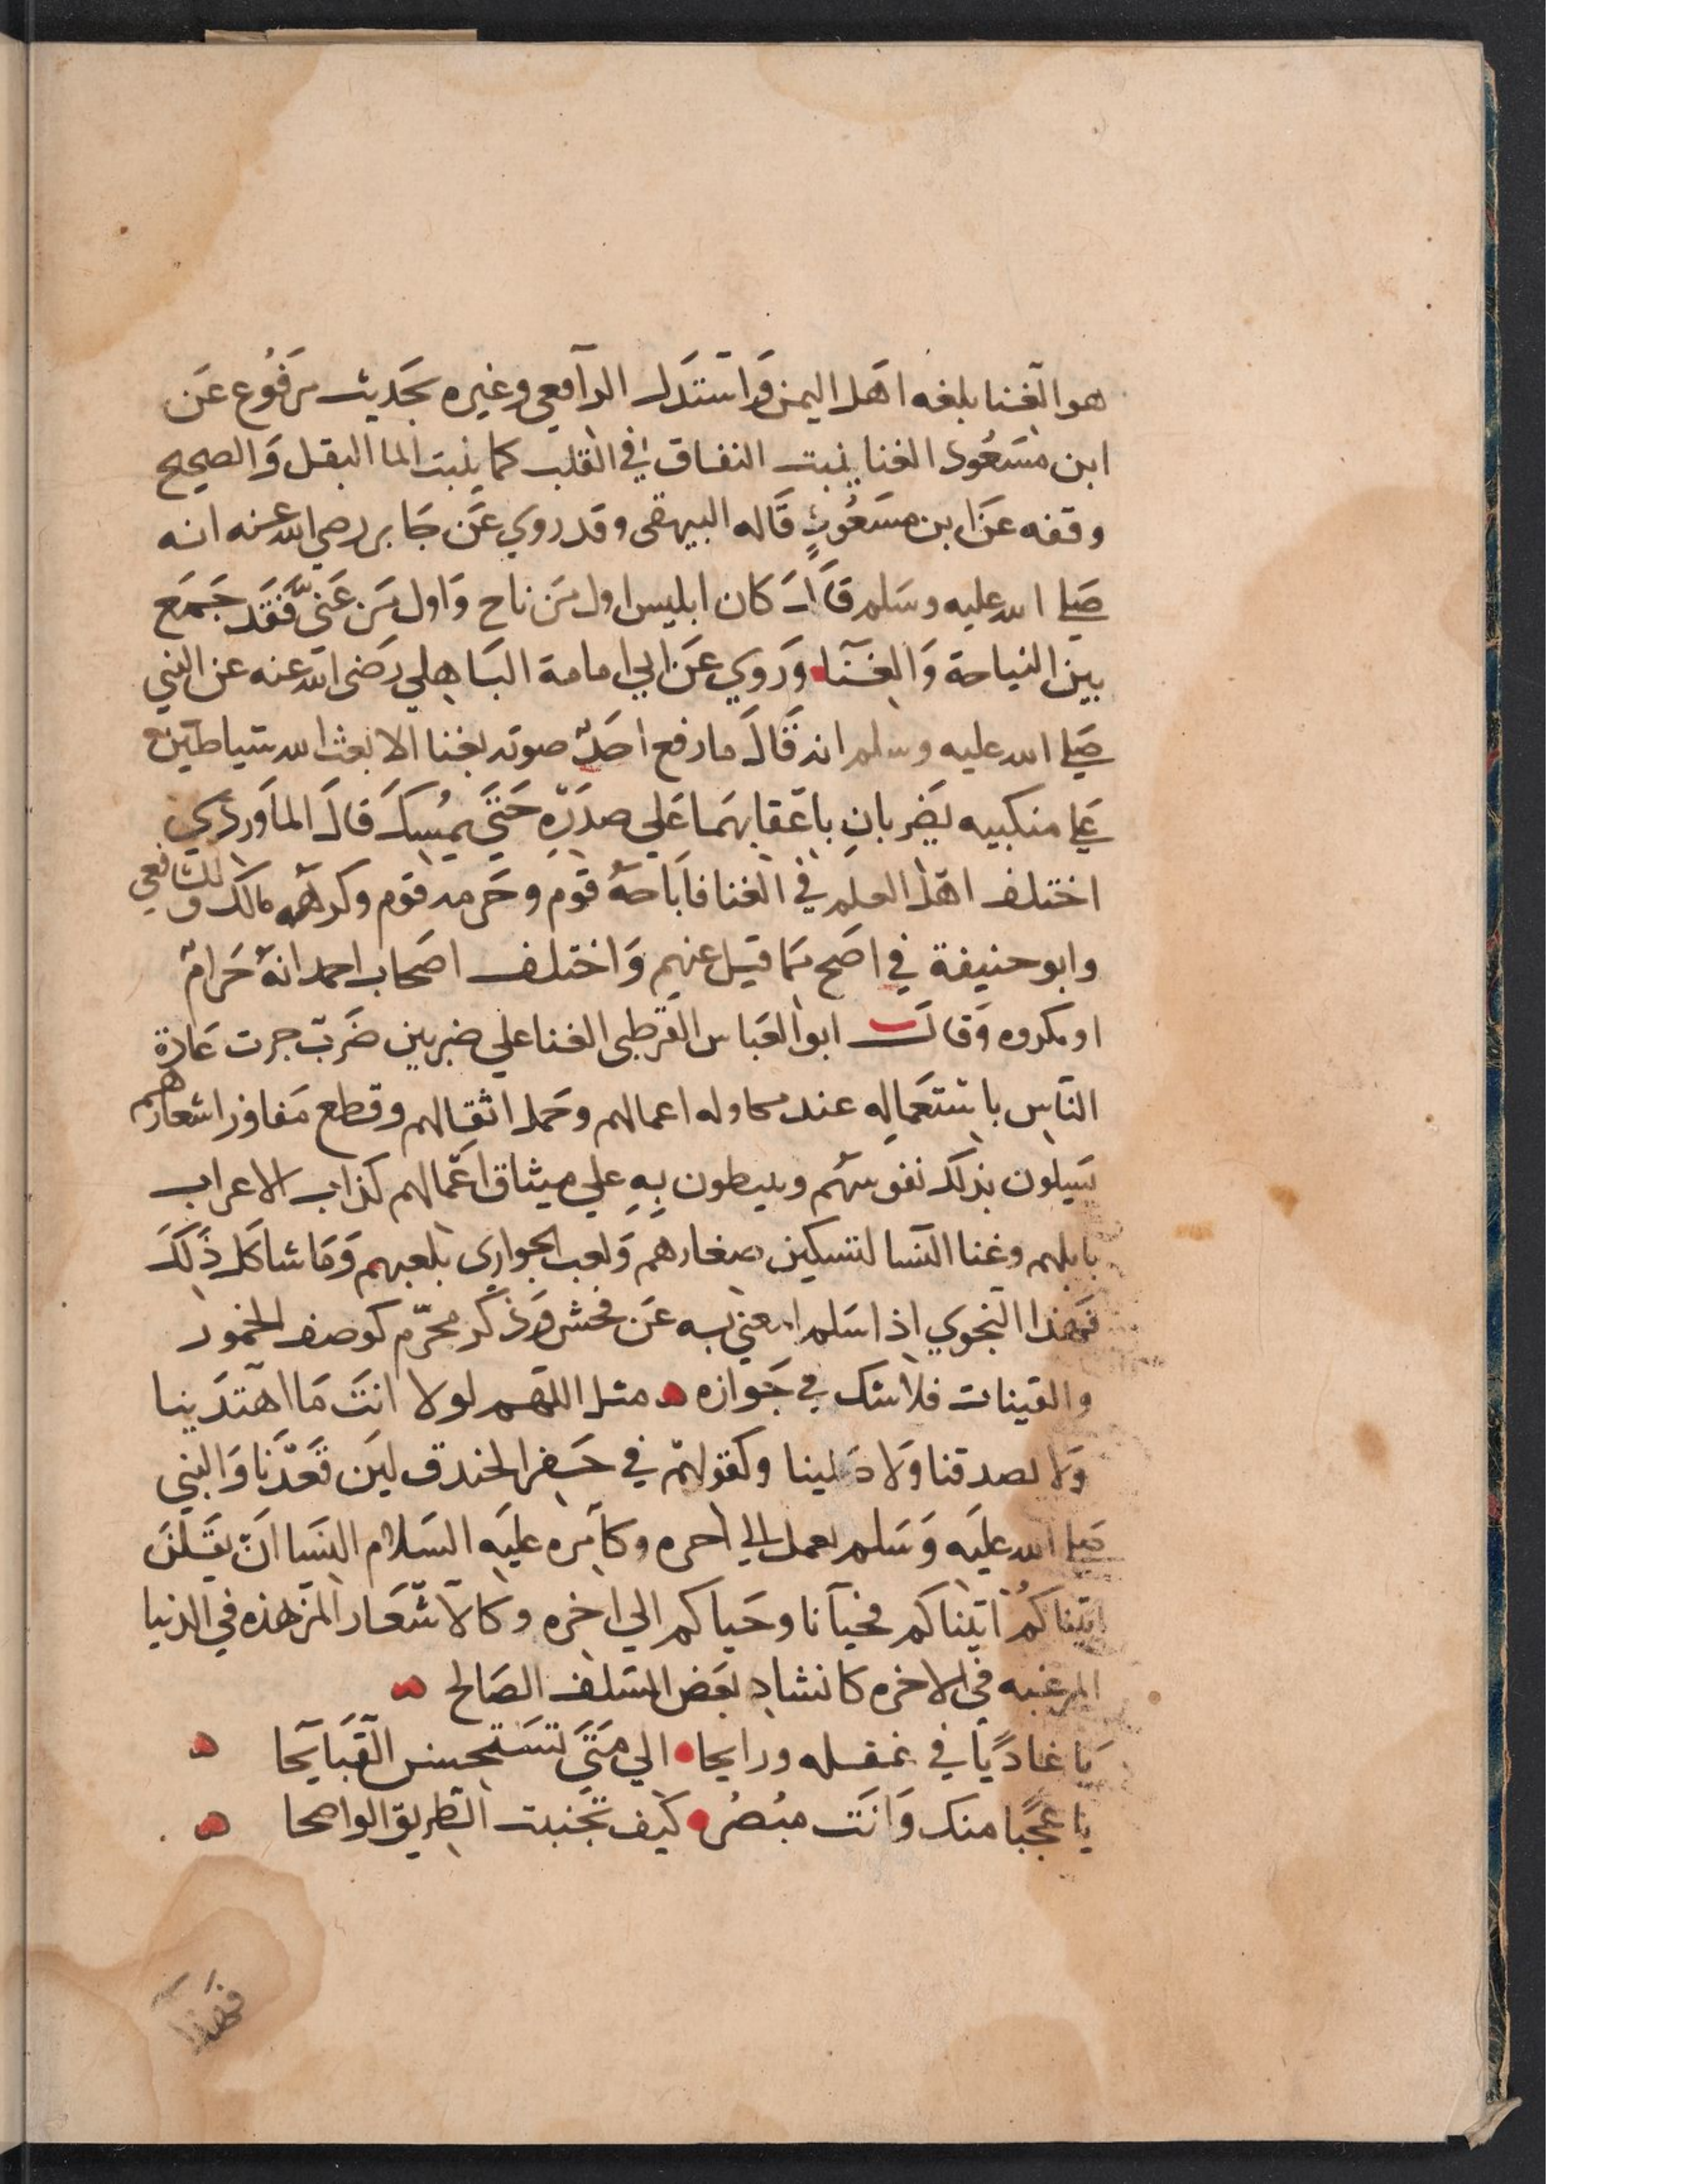 هو الغنا بلغه اهل اليمن واستدل الرافعي وغيره بحديث مرفوع عن
ابن مسعود الغنا ينبت النفاق في القلب كما ينبت الما البقل والصحيح
وقفه عن ابن مسعود قاله البيهقى وقد روي عن جابر رضي الله عنه انه
صلي الله عليه وسلم قال كان ابليس اول من ناح واول من غني فقد جمع
بين النياحة والغنا وروي عن ابي امامة الباهلي رضى الله عنه عن النبي
صلي الله عليه وسلم انه قال ما رفع احد صوته بغنا الا بعث الله شياطين
علي منكبيه يضربان باعقابهما علي صدره حتي يمسك قال الماوردي
اختلف اهل العلم في الغنا فاباحه قوم وحرمه قوم وكرهه مالك والشافعي
وابو حنيفة في اصح ما قيل عنهم واختلف اصحاب احمد انه حرام
او مكروه وقال ابو العباس القرطبى الغنا علي ضربين ضرب جرت عادة
الناس باستعماله عند محاوله اعمالهم وحمل اثقالهم وقطع مفاوز اشعارهم
يسلون بذلك نفوسهم وينبطون به علي ميثاق اعمالهم كذاب الاعراب
بابلهم وغنا النسا لتسكين صغارهم ولعب الجواري بلعبهم وما شاكل ذلك
فهذا النجوي اذا سلم المعني به عن فحش وذكر محرم كوصف الخمور
والقينات فلا شك في جوازه مثل اللهم لولا انت ما اهتدينا
ولا تصدقنا ولا صلينا وكقولهم في حفر الخندق لين قعدنا والنبي
صلي الله عليه وسلم يعمل الي احره وكامره عليه السلام النسا ان يقلن
اتيناكم اتيناكم فحيانا وحياكم الي اخره وكالاشعار المزهده في الدنيا
المرغبه في الاخره كانشاد بعض السلف الصالح
يا غاديا في غفله ورايحا الي متي تستحسن القبايحا
يا عجبا منك وانت مبصر كيف تجنبت الطريق الواضحا
فهذا